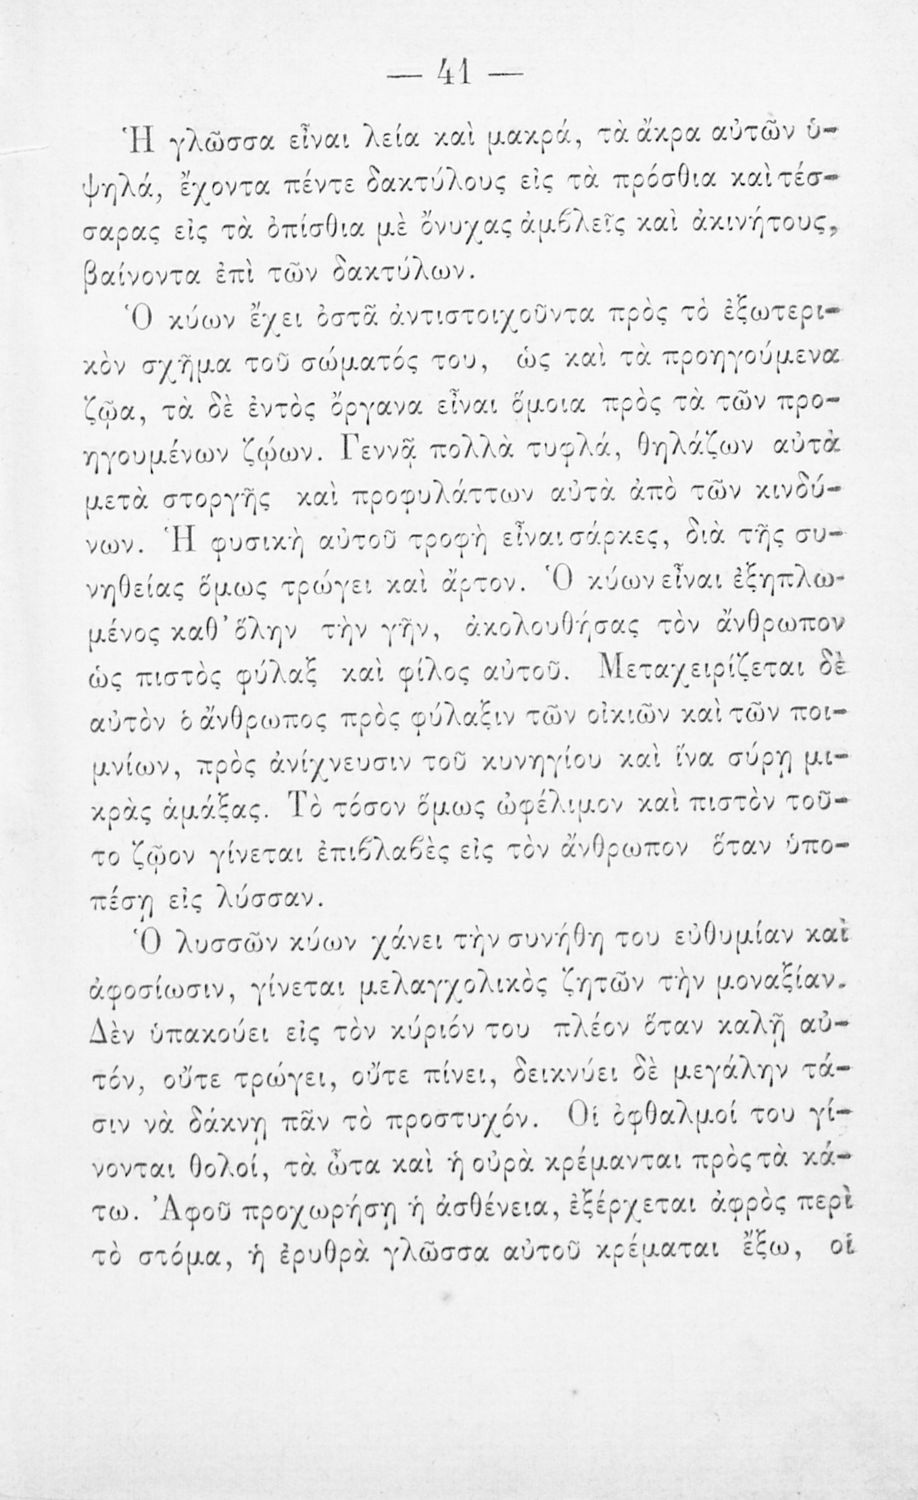 — 41 —
Ἡ γλῶσσα εἶναι λεία καὶ μακρά, τὰ ἄκρα αὐτῶν ὑ-
ψηλά, ἔχοντα πέντε δακτύλους εἰς τὰ πρόσθια καὶ τέσ-
σαρας εἰς τὰ ὀπίσθια μὲ ὄνυχας ἀμβλεῖς καὶ ἀκινήτους,
βαίνοντα ἐπὶ τῶν δακτύλων.
Ὁ κύων ἔχει ὀστᾶ ἀντιστοιχοῦντα πρὸς τὸ ἐξωτερι-
κὸν σχῆμα τοῦ σώματός του, ὡς καὶ τὰ προηγούμενα
ζῷα, τὰ δὲ ἐντὸς ὄργανα εἶναι ὅμοια πρὸς τὰ τῶν προ-
ηγουμένων ζῴων. Γεννᾷ πολλὰ τυφλά, θηλάζων αὐτὰ
μετὰ στοργῆς καὶ προφυλάττων αὐτὰ ἀπὸ τῶν κινδύ-
νων. Ἡ φυσικὴ αὐτοῦ τροφὴ εἶναι σάρκες, διὰ τῆς συ-
νηθείας ὅμως τρώγει καὶ ἄρτον. Ὁ κύων εἶναι ἐξηπλω-
μένος καθ' ὅλην τὴν γῆν, ἀκολουθήσας τὸν ἄνθρωπον
ὡς πιστὸς φύλαξ καὶ φίλος αὐτοῦ. Μεταχειρίζεται δὲ
αὐτὸν ὁ ἄνθρωπος πρὸς φύλαξιν τῶν οἰκιῶν καὶ τῶν ποι-
μνίων, πρὸς ἀνίχνευσιν τοῦ κυνηγίου καὶ ἵνα σύρῃ μι-
κρὰς ἁμάξας. Τὸ τόσον ὅμως ὠφέλιμον καὶ πιστὸν τοῦ-
το ζῷον γίνεται ἐπιβλαβὲς εἰς τὸν ἄνθρωπον ὅταν ὑπο-
πέσῃ εἰς λύσσαν.
Ὁ λυσσῶν κύων χάνει τὴν συνήθη του εὐθυμίαν καὶ
ἀφοσίωσιν, γίνεται μελαγχολικὸς ζητῶν τὴν μοναξίαν.
Δὲν ὑπακούει εἰς τὸν κύριόν του πλέον ὅταν καλῇ αὐ-
τόν, οὔτε τρώγει, οὔτε πίνει, δεικνύει δὲ μεγάλην τά-
σιν νὰ δάκνῃ πᾶν τὸ προστυχόν. Οἱ ὀφθαλμοί του γί-
νονται θολοί, τὰ ὦτα καὶ ἡ οὐρὰ κρέμανται πρὸς τὰ κά-
τω. Ἀφοῦ προχωρήσῃ ἡ ἀσθένεια, ἐξέρχεται ἀφρὸς περὶ
τὸ στόμα, ἡ ἐρυθρὰ γλῶσσα αὐτοῦ κρέμαται ἔξω, οἱ